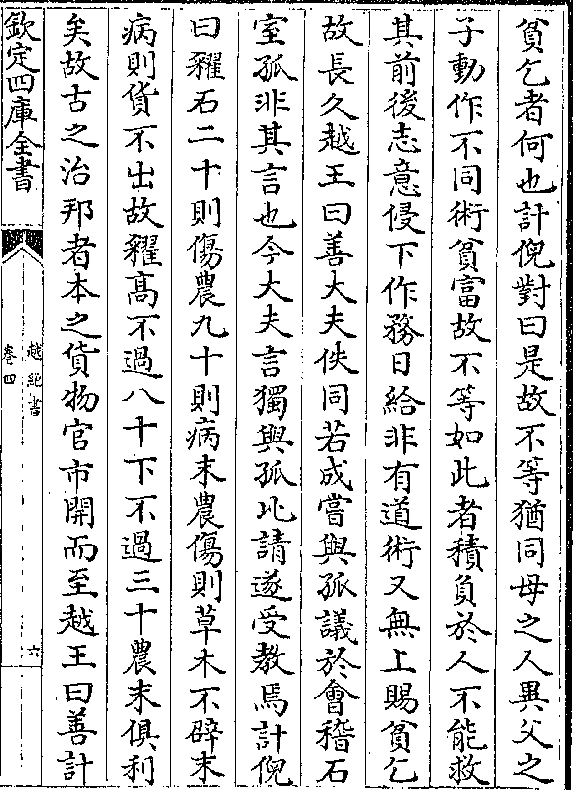 貧乞者何也計倪對曰是故不等猶同母之人異父之
子動作不同術貧富故不等如此者積負於人不能救
其前後志意侵下作務日給非有道術又無上賜貧乞
故長久越王曰善大夫佚同若成嘗與孤議於㑹稽石
室孤非其言也今大夫言獨與孤比請遂受教焉計倪
曰糴石二十則傷農九十則病末農傷則草木不辟末
病則貨不出故糴髙不過八十下不過三十農末俱利
矣故古之治邦者本之貨物官市開而至越王曰善計
欽定四庫全書
越絶書
卷四
六